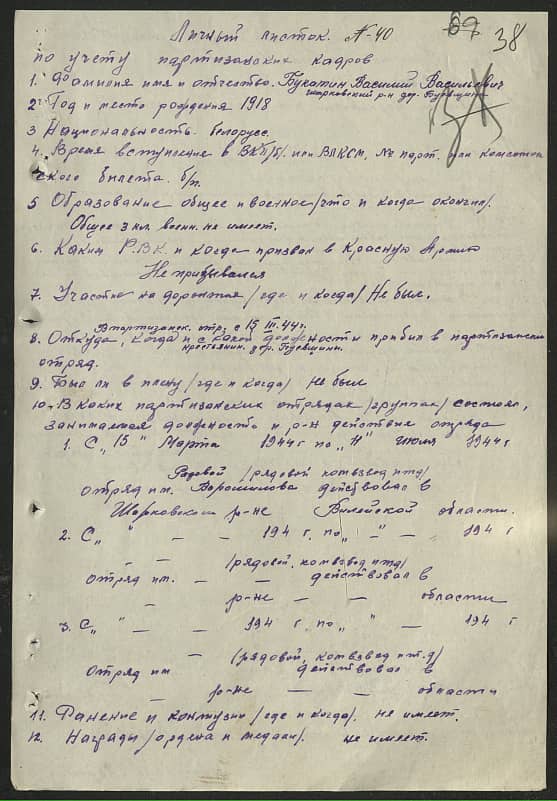 Личный листок N-40
69 38
по учету партизанских кадров
1. Фамилия имя и отчество. Букатин Василий Васильевич
2. Год и место рождения 1918 шарковский р-н дер.
3 Национальность. белорусс.
4. Время вступление в ВКП/б/. или ВЛКСМ, № парт. или комсомоль
ского билета. б/п.
5 Образование общее и военное/что и когда окончил/.
Общее 3 кл. военн. не имеет.
6. Каким Р.В.К. и когда призван в Красную Армию
Не призывался
7. Участие на фронтах /где и когда/ Не был.
В партизанск. отр. с 15 III.44 г.
8. Откуда, когда и с какой должности прибыл в партизанский
крестьянин. з др.
отряд.
9. Был ли в плену /где и когда/ не был
10. В каких партизанских отрядах /группах/ состоял,
занимаемая должность и р-н действия отряда
1. С „15" Марта 1944 г по „11" июля 1944 г
Рядовой /рядовой комвзвод итд/
отряд им. Ворошилова действовал в
Шарковском р-не Вилейской области.
2. С „ " — — 194 г. по „ " — 194 г
— — /рядовой. комвзвод итд/
отряд им. — — действовал в
— р-не — — области
3. С „ " — — 194 г. по „ " — 194 г
— — /рядовой, комвзвод и т.д/
отряд им — действовал в
— р-не — — области
11. Ранение и контузии /где и когда/. не имеет.
12. Награды /ордена и медали/. не имеет.